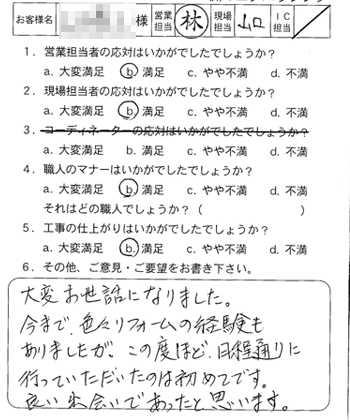 お客様名 様 営業担当 林 現場担当 山口 IC担当
1．営業担当者の応対はいかがでしたでしょうか？
a. 大変満足 b. 満足 c. やや不満 d. 不満
2．現場担当者の応対はいかがでしたでしょうか？
a. 大変満足 b. 満足 c. やや不満 d. 不満
3．コーディネーターの応対はいかがでしたでしょうか？
a. 大変満足 b. 満足 c. やや不満 d. 不満
4．職人のマナーはいかがでしたでしょうか？
a. 大変満足 b. 満足 c. やや不満 d. 不満
それはどの職人でしょうか？（ ）
5．工事の仕上がりはいかがでしたでしょうか？
a. 大変満足 b. 満足 c. やや不満 d. 不満
6．その他、ご意見・ご要望をお書き下さい。
大変お世話になりました。
今まで、色々リフォームの経験も
ありましたが、この度ほど、日程通りに
行っていただいたのは初めてです。
良い出会いであったと思います。